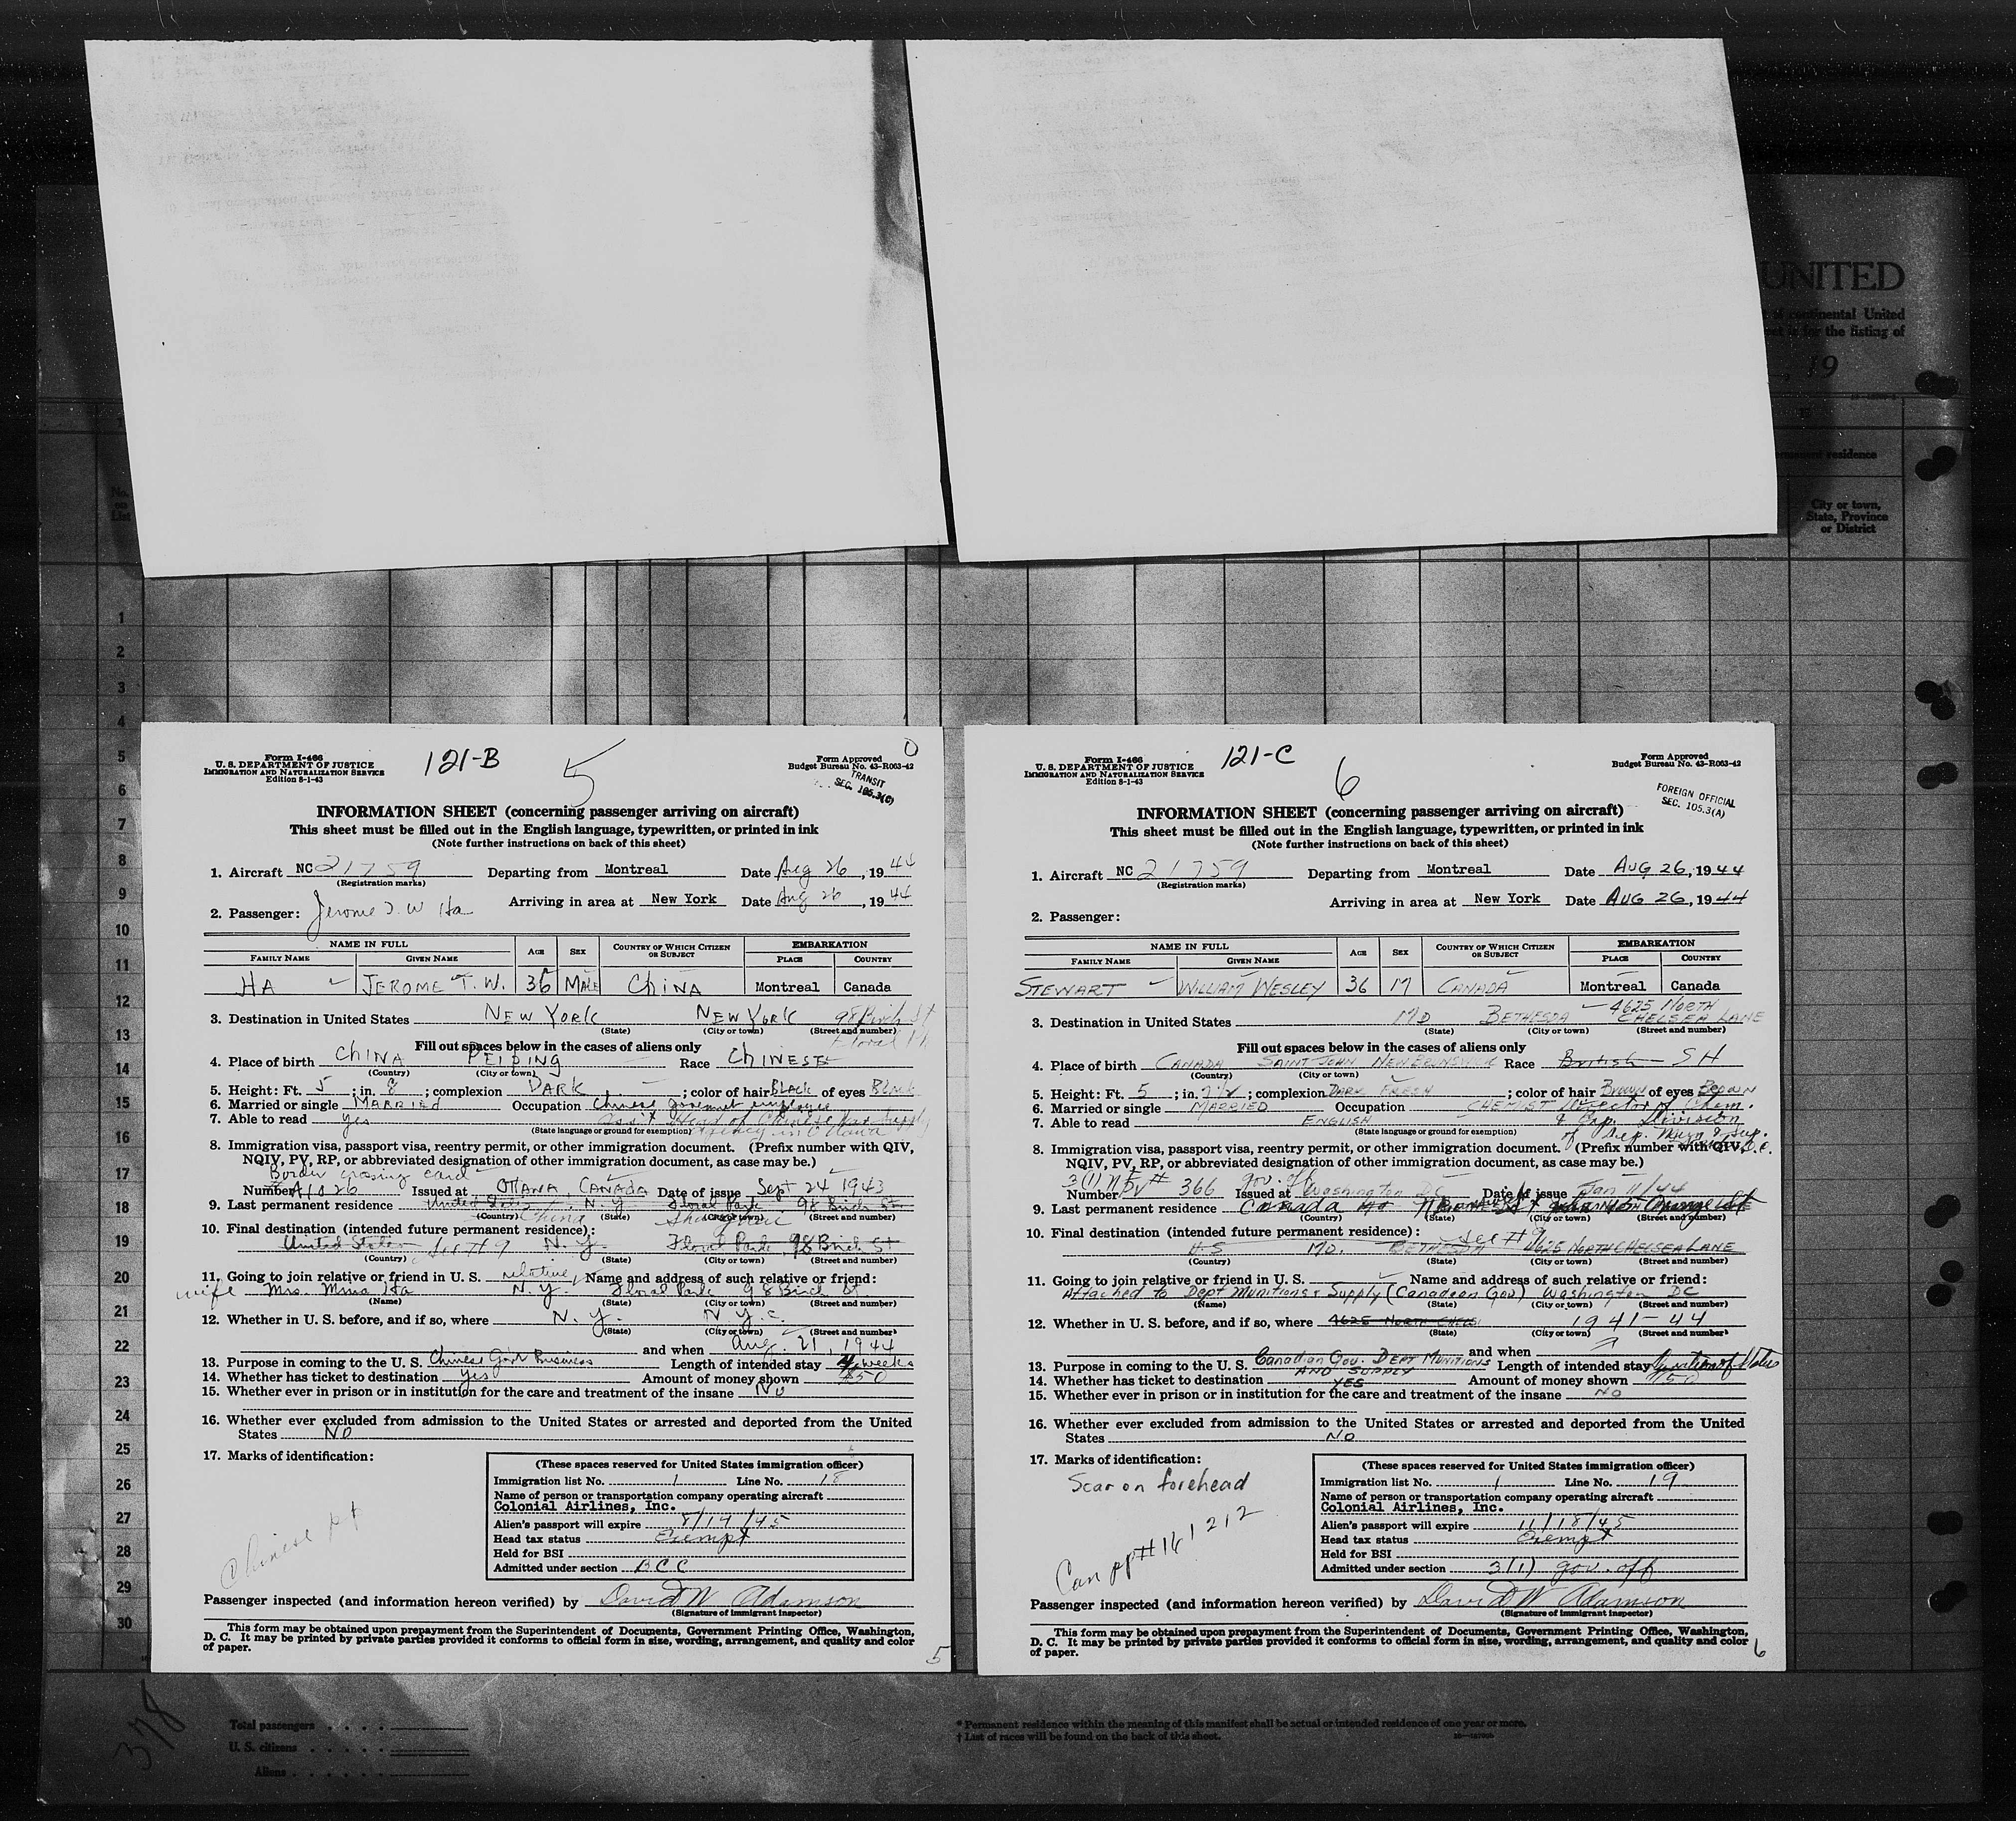 UNITED
continental United
for the listing of
, 19
permanent residence
No. on List
City or town, State, Province or District
1
2
3
4
5
6
7
8
9
10
11
12
13
14
15
16
17
18
19
20
21
22
23
24
25
26
27
28
29
30
Form I-466
U. S. DEPARTMENT OF JUSTICE
IMMIGRATION AND NATURALIZATION SERVICE
Edition 8-1-43
121-B
5
0
Form Approved
Budget Bureau No. 43-R063-42
TRANSIT
SEC. 105.3(C)
INFORMATION SHEET (concerning passenger arriving on aircraft)
This sheet must be filled out in the English language, typewritten, or printed in ink
(Note further instructions on back of this sheet)
1. Aircraft NC 21759 Departing from Montreal Date Aug 26, 1944
(Registration marks)
Arriving in area at New York Date Aug 26, 1944
2. Passenger: Jerome T. W Ha
NAME IN FULL AGE SEX COUNTRY OF WHICH CITIZEN OR SUBJECT EMBARKATION
FAMILY NAME GIVEN NAME PLACE COUNTRY
HA JEROME T. W. 36 MALE CHINA Montreal Canada
3. Destination in United States NEW YORK NEW YORK 98 Birch St
(State) (City or town) (Street and number)
Floral Pk
Fill out spaces below in the cases of aliens only
4. Place of birth CHINA PEIPING Race CHINESE
(Country) (City or town)
5. Height: Ft. 5; in. 8; complexion DARK; color of hair BLACK of eyes Black
6. Married or single MARRIED Occupation Chinese government employee
7. Able to read yes Ass't Head of Chinese War Supply
(State language or ground for exemption) Agency in Ottawa
8. Immigration visa, passport visa, reentry permit, or other immigration document. (Prefix number with QIV,
NQIV, PV, RP, or abbreviated designation of other immigration document, as case may be.)
Border crossing card
Number A1026 Issued at OTTAWA, CANADA Date of issue Sept 24 1943
9. Last permanent residence United States, N. Y. Floral Park 98 Birch St.
(Country) (State) (City or town) (Street and number)
China Shanghai
10. Final destination (intended future permanent residence):
United States See #9 N. Y. Floral Park, 98 Birch St
(Country) (State) (City or town) (Street and number)
11. Going to join relative or friend in U. S. relative, Name and address of such relative or friend:
wife Mrs. Mina Ha N. Y. Floral Park 98 Birch St
(Name) (State) (City or town) (Street and number)
12. Whether in U. S. before, and if so, where N. Y. N. Y. C.
(State) (City or town) (Street and number)
and when Aug. 21, 1944
13. Purpose in coming to the U. S. Chinese Gov't Business Length of intended stay 4 weeks
14. Whether has ticket to destination yes Amount of money shown $50
15. Whether ever in prison or in institution for the care and treatment of the insane No
16. Whether ever excluded from admission to the United States or arrested and deported from the United
States NO
17. Marks of identification:
Chinese pp
(These spaces reserved for United States immigration officer)
Immigration list No. 1 Line No. 18
Name of person or transportation company operating aircraft
Colonial Airlines, Inc.
Alien's passport will expire 8/14/45
Head tax status Exempt
Held for BSI
Admitted under section BCC
Passenger inspected (and information hereon verified) by David W Adamson
(Signature of immigrant inspector)
This form may be obtained upon prepayment from the Superintendent of Documents, Government Printing Office, Washington,
D. C. It may be printed by private parties provided it conforms to official form in size, wording, arrangement, and quality and color
of paper.
5
Form I-466
U. S. DEPARTMENT OF JUSTICE
IMMIGRATION AND NATURALIZATION SERVICE
Edition 8-1-43
121-C
6
Form Approved
Budget Bureau No. 43-R063-42
FOREIGN OFFICIAL
SEC. 105.3(A)
INFORMATION SHEET (concerning passenger arriving on aircraft)
This sheet must be filled out in the English language, typewritten, or printed in ink
(Note further instructions on back of this sheet)
1. Aircraft NC 21759 Departing from Montreal Date AUG 26, 1944
(Registration marks)
Arriving in area at New York Date AUG 26, 1944
2. Passenger:
NAME IN FULL AGE SEX COUNTRY OF WHICH CITIZEN OR SUBJECT EMBARKATION
FAMILY NAME GIVEN NAME PLACE COUNTRY
STEWART WILLIAM WESLEY 36 M CANADA Montreal Canada
3. Destination in United States MD BETHESDA 4625 NORTH CHELSEA LANE
(State) (City or town) (Street and number)
Fill out spaces below in the cases of aliens only
4. Place of birth CANADA SAINT JOHN NEW BRUNSWICK Race British SH
(Country) (City or town)
5. Height: Ft. 5; in. 7 1/2; complexion DARK FRESH; color of hair BROWN of eyes BROWN
6. Married or single MARRIED Occupation CHEMIST Director of Chem.
7. Able to read ENGLISH & Exp. Division
(State language or ground for exemption) of Dep. Mun & Sup.
8. Immigration visa, passport visa, reentry permit, or other immigration document. (Prefix number with QIV,
NQIV, PV, RP, or abbreviated designation of other immigration document, as case may be.)
3(1) gov. off
Number PV# 366 Issued at Washington DC Date of issue Jan 11/44
9. Last permanent residence Canada
(Country) (State) (City or town) (Street and number)
10. Final destination (intended future permanent residence): See #9
U.S MD. BETHESDA 4625 NORTH CHELSEA LANE
(Country) (State) (City or town) (Street and number)
11. Going to join relative or friend in U. S. Name and address of such relative or friend:
Attached to Dept Munitions & Supply (Canadean Gov) Washington DC
(Name) (State) (City or town) (Street and number)
12. Whether in U. S. before, and if so, where 4625 NORTH CHELS 1941-44
(State) (City or town) (Street and number)
and when
13. Purpose in coming to the U. S. Canadian Gov. DEPT MUNITIONS Length of intended stay duration of status
AND SUPPLY
14. Whether has ticket to destination YES Amount of money shown $150
15. Whether ever in prison or in institution for the care and treatment of the insane NO
16. Whether ever excluded from admission to the United States or arrested and deported from the United
States NO
17. Marks of identification:
Scar on forehead
Can pp# 161212
(These spaces reserved for United States immigration officer)
Immigration list No. 1 Line No. 19
Name of person or transportation company operating aircraft
Colonial Airlines, Inc.
Alien's passport will expire 11/18/45
Head tax status Exempt
Held for BSI
Admitted under section 3(1) gov. off
Passenger inspected (and information hereon verified) by David W Adamson
(Signature of immigrant inspector)
This form may be obtained upon prepayment from the Superintendent of Documents, Government Printing Office, Washington,
D. C. It may be printed by private parties provided it conforms to official form in size, wording, arrangement, and quality and color
of paper.
6
378
Total passengers
U. S. citizens
Aliens
* Permanent residence within the meaning of this manifest shall be actual or intended residence of one year or more.
† List of races will be found on the back of this sheet.